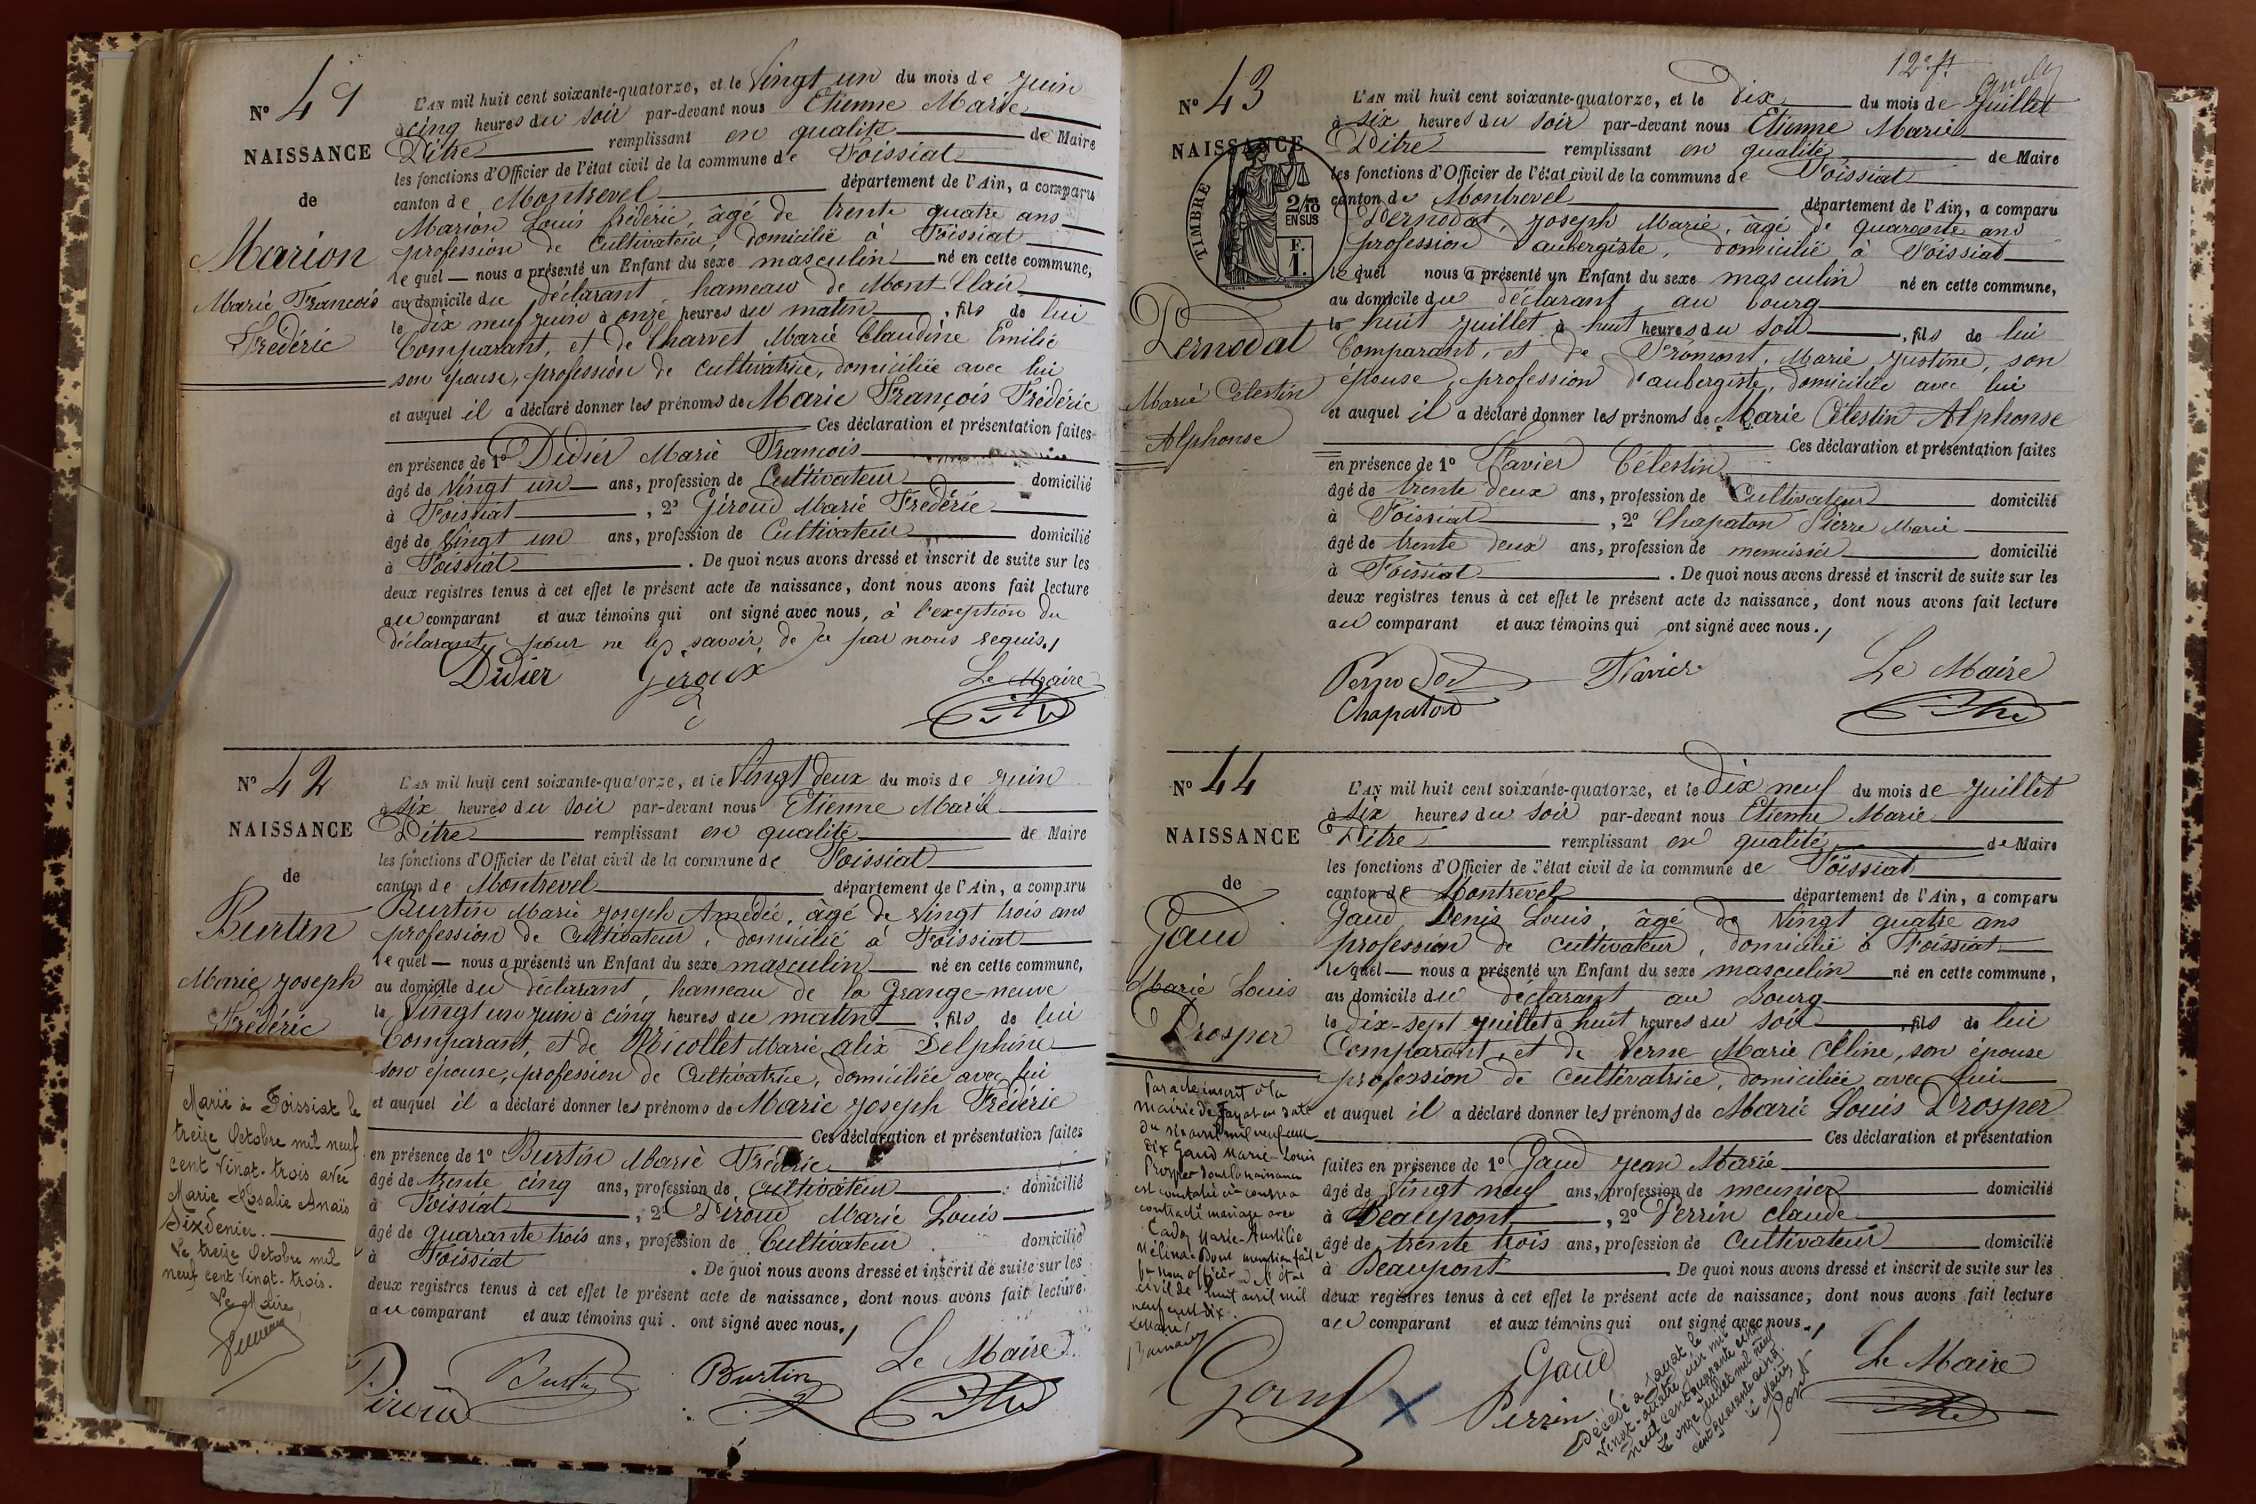 N° 41
NAISSANCE
de
Marion
Marie François
Frédéric
L'AN mil huit cent soixante-quatorze, et le Vingt un du mois de Juin
à cinq heures du soir par-devant nous Etienne Marie
Pitre remplissant en qualité de Maire
les fonctions d'Officier de l'état civil de la commune de Foissiat
canton de Montrevel département de l'Ain, a comparu
Marion Louis frédéric, âgé de trente quatre ans
profession de Cultivateur, domicilié à Foissiat
le quel nous a présenté un Enfant du sexe masculin né en cette commune,
au domicile du déclarant, hameau de Mont Clair
le dix neuf juin à onze heures du matin, fils de lui
Comparant, et de Charvet Marie Claudine Emilie
son épouse, profession de cultivatrice, domiciliée avec lui
et auquel il a déclaré donner les prénoms de Marie François Frédéric
Ces déclaration et présentation faites
en présence de 1° Didier Marie François
âgé de Vingt un ans, profession de Cultivateur domicilié
à Foissiat, 2° Giroud Marie Frédéric
âgé de Vingt un ans, profession de Cultivateur domicilié
à Foissiat. De quoi nous avons dressé et inscrit de suite sur les
deux registres tenus à cet effet le présent acte de naissance, dont nous avons fait lecture
au comparant et aux témoins qui ont signé avec nous, à l'exception du
déclarant, pour ne le savoir, de ce par nous requis.
Didier Giroux Le Maire
N° 42
NAISSANCE
de
Burtin
Marie Joseph
Frédéric
L'AN mil huit cent soixante-quatorze, et le Vingt deux du mois de Juin
à six heures du soir par-devant nous Etienne Marie
Pitre remplissant en qualité de Maire
les fonctions d'Officier de l'état civil de la commune de Foissiat
canton de Montrevel département de l'Ain, a comparu
Burtin Marie Joseph Amédée, âgé de Vingt trois ans
profession de Cultivateur, domicilié à Foissiat
le quel nous a présenté un Enfant du sexe masculin né en cette commune,
au domicile du déclarant, hameau de la Grange-neuve
le Vingt un juin à cinq heures du matin, fils de lui
Comparant, et de Nicollet Marie alix Delphine
son épouse, profession de Cultivatrice, domiciliée avec lui
et auquel il a déclaré donner les prénoms de Marie Joseph Frédéric
Ces déclaration et présentation faites
en présence de 1° Burtin Marie Frédéric
âgé de trente cinq ans, profession de cultivateur domicilié
à Foissiat, 2° Piroud Marie Louis
âgé de quarante trois ans, profession de Cultivateur domicilié
à Foissiat. De quoi nous avons dressé et inscrit de suite sur les
deux registres tenus à cet effet le présent acte de naissance, dont nous avons fait lecture
au comparant et aux témoins qui ont signé avec nous.
Le Maire
Piroud Burtin Burtin
Marié à Foissiat le
treize Octobre mil neuf
cent Vingt-trois avec
Marie Rosalie Anaïs
Sixdenier.
Le treize Octobre mil
neuf cent Vingt-trois.
Le Maire
N° 43
NAISSANCE
TIMBRE
2/10
EN SUS
F.
1.
Pernodat
Marie Célestin
Alphonse
L'AN mil huit cent soixante-quatorze, et le Dix du mois de Juillet
à six heures du soir par-devant nous Etienne Marie
Pitre remplissant en qualité de Maire
les fonctions d'Officier de l'état civil de la commune de Foissiat
canton de Montrevel département de l'Ain, a comparu
Pernodat, Joseph Marie, âgé de quarante ans
profession d'aubergiste, domicilié à Foissiat
le quel nous a présenté un Enfant du sexe masculin né en cette commune,
au domicile du déclarant, au bourg
le huit juillet à huit heures du soir, fils de lui
Comparant, et de Frémont, Marie Justine, son
épouse, profession d'aubergiste, domiciliée avec lui
et auquel il a déclaré donner les prénoms de Marie Célestin Alphonse
Ces déclaration et présentation faites
en présence de 1° Favier Célestin
âgé de trente deux ans, profession de Cultivateur domicilié
à Foissiat, 2° Chapaton Pierre Marie
âgé de trente deux ans, profession de menuisier domicilié
à Foissiat. De quoi nous avons dressé et inscrit de suite sur les
deux registres tenus à cet effet le présent acte de naissance, dont nous avons fait lecture
au comparant et aux témoins qui ont signé avec nous.
Pernodat Favier Le Maire
Chapaton
N° 44
NAISSANCE
de
Gaud
Marie Louis
Prosper
L'AN mil huit cent soixante-quatorze, et le Dix neuf du mois de Juillet
à six heures du soir par-devant nous Etienne Marie
Pitre remplissant en qualité de Maire
les fonctions d'Officier de l'état civil de la commune de Foissiat
canton de Montrevel département de l'Ain, a comparu
Gaud, Denis Louis, âgé de Vingt quatre ans
profession de cultivateur, domicilié à Foissiat
le quel nous a présenté un Enfant du sexe masculin né en cette commune,
au domicile du déclarant au Bourg
le Dix-sept juillet à huit heures du soir, fils de lui
Comparant, et de Verne Marie Céline, son épouse
profession de cultivatrice, domiciliée avec lui
et auquel il a déclaré donner les prénoms de Marie Louis Prosper
Ces déclaration et présentation
faites en présence de 1° Gaud Jean Marie
âgé de Vingt neuf ans, profession de meunier domicilié
à Beaupont, 2° Perrin claude
âgé de trente trois ans, profession de Cultivateur domicilié
à Beaupont De quoi nous avons dressé et inscrit de suite sur les
deux registres tenus à cet effet le présent acte de naissance, dont nous avons fait lecture
au comparant et aux témoins qui ont signé avec nous.
Gaud Gaud Perrin Le Maire
Par acte inscrit à la
mairie de Jayat en date
du avril mil neuf cent
dix Gaud Marie-Louis
Prosper dont la naissance
est constatée ci-contre a
contracté mariage avec
Cadoz Marie-Aurélie
Mélina. Dont mention faite
par nous officier de l'état
civil le huit avril mil
neuf cent dix.
Le Maire
Décédé à Jayat, le
vingt-quatre mil
neuf cent quarante cinq.
Le onze juillet mil neuf
cent quarante cinq.
le Maire,